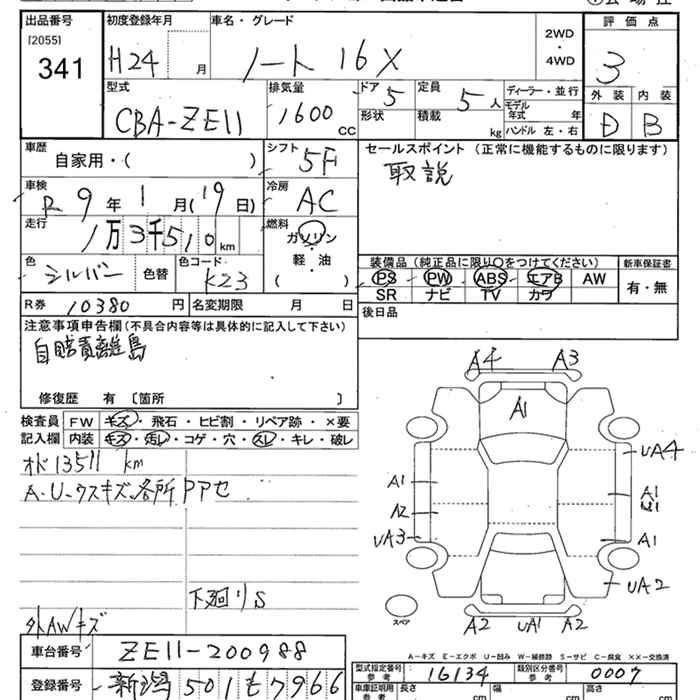 出品番号 初度登録年月 車名・グレード 評価点
[2055]
341
H24 月 ノート 16X 2WD・4WD 3
型式 排気量 ドア 定員 ディーラー・並行 外装 内装
CBA-ZE11 1600cc 5 5人 モデル年式 年 D B
形状 積載 kg ハンドル 左・右
車歴 自家用・( ) シフト 5F セールスポイント (正常に機能するものに限ります)
取説
車検 R9年1月(19日) 冷房 AC
走行 1万3千510km 燃料 ガソリン・軽・油 ( )
色 シルバー 色替 色コード K23
装備品 (純正品に限り○をつけてください) 新車保証書
PS PW ABS エアB AW 有・無
SR ナビ TV カワ
R券 10380円 名変期限 月 日 後日品
注意事項申告欄 (不具合内容等は具体的に記入して下さい)
自賠責離島
修復歴 有 〔箇所 〕
検査員 FW キズ・飛石・ヒビ割・リペア跡・×要
記入欄 内装 キズ・汚レ・コゲ・穴・スレ・キレ・破レ
オド13511km
A・U・ウスキズ各所 Pアセ
下廻りS
外AWキズ
A4 A3
A1
UA4
A1 A1
A2
UA3 A1
UA2
スペア A2 UA1 A2
A-キズ E-エクボ U-凹み W-補修跡 S-サビ C-腐食 XX-交換済
車台番号 ZE11-200988
登録番号 新潟501も7966
型式指定番号 参考 16134 類別区分番号 参考 0007
車庫証明用 参考 長さ cm 幅 cm 高さ cm